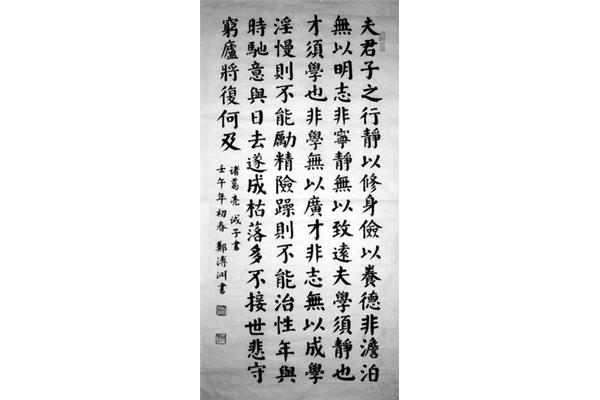 夫君子之行靜以修身儉以養德非澹泊
無以明志非寧靜無以致遠夫學須靜也
才須學也非學無以廣才非志無以成學
淫慢則不能勵精險躁則不能治性年與
時馳意與日去遂成枯落多不接世悲守
窮廬將復何及
诸葛亮诚子書
壬午年初春 鄭溥洲書